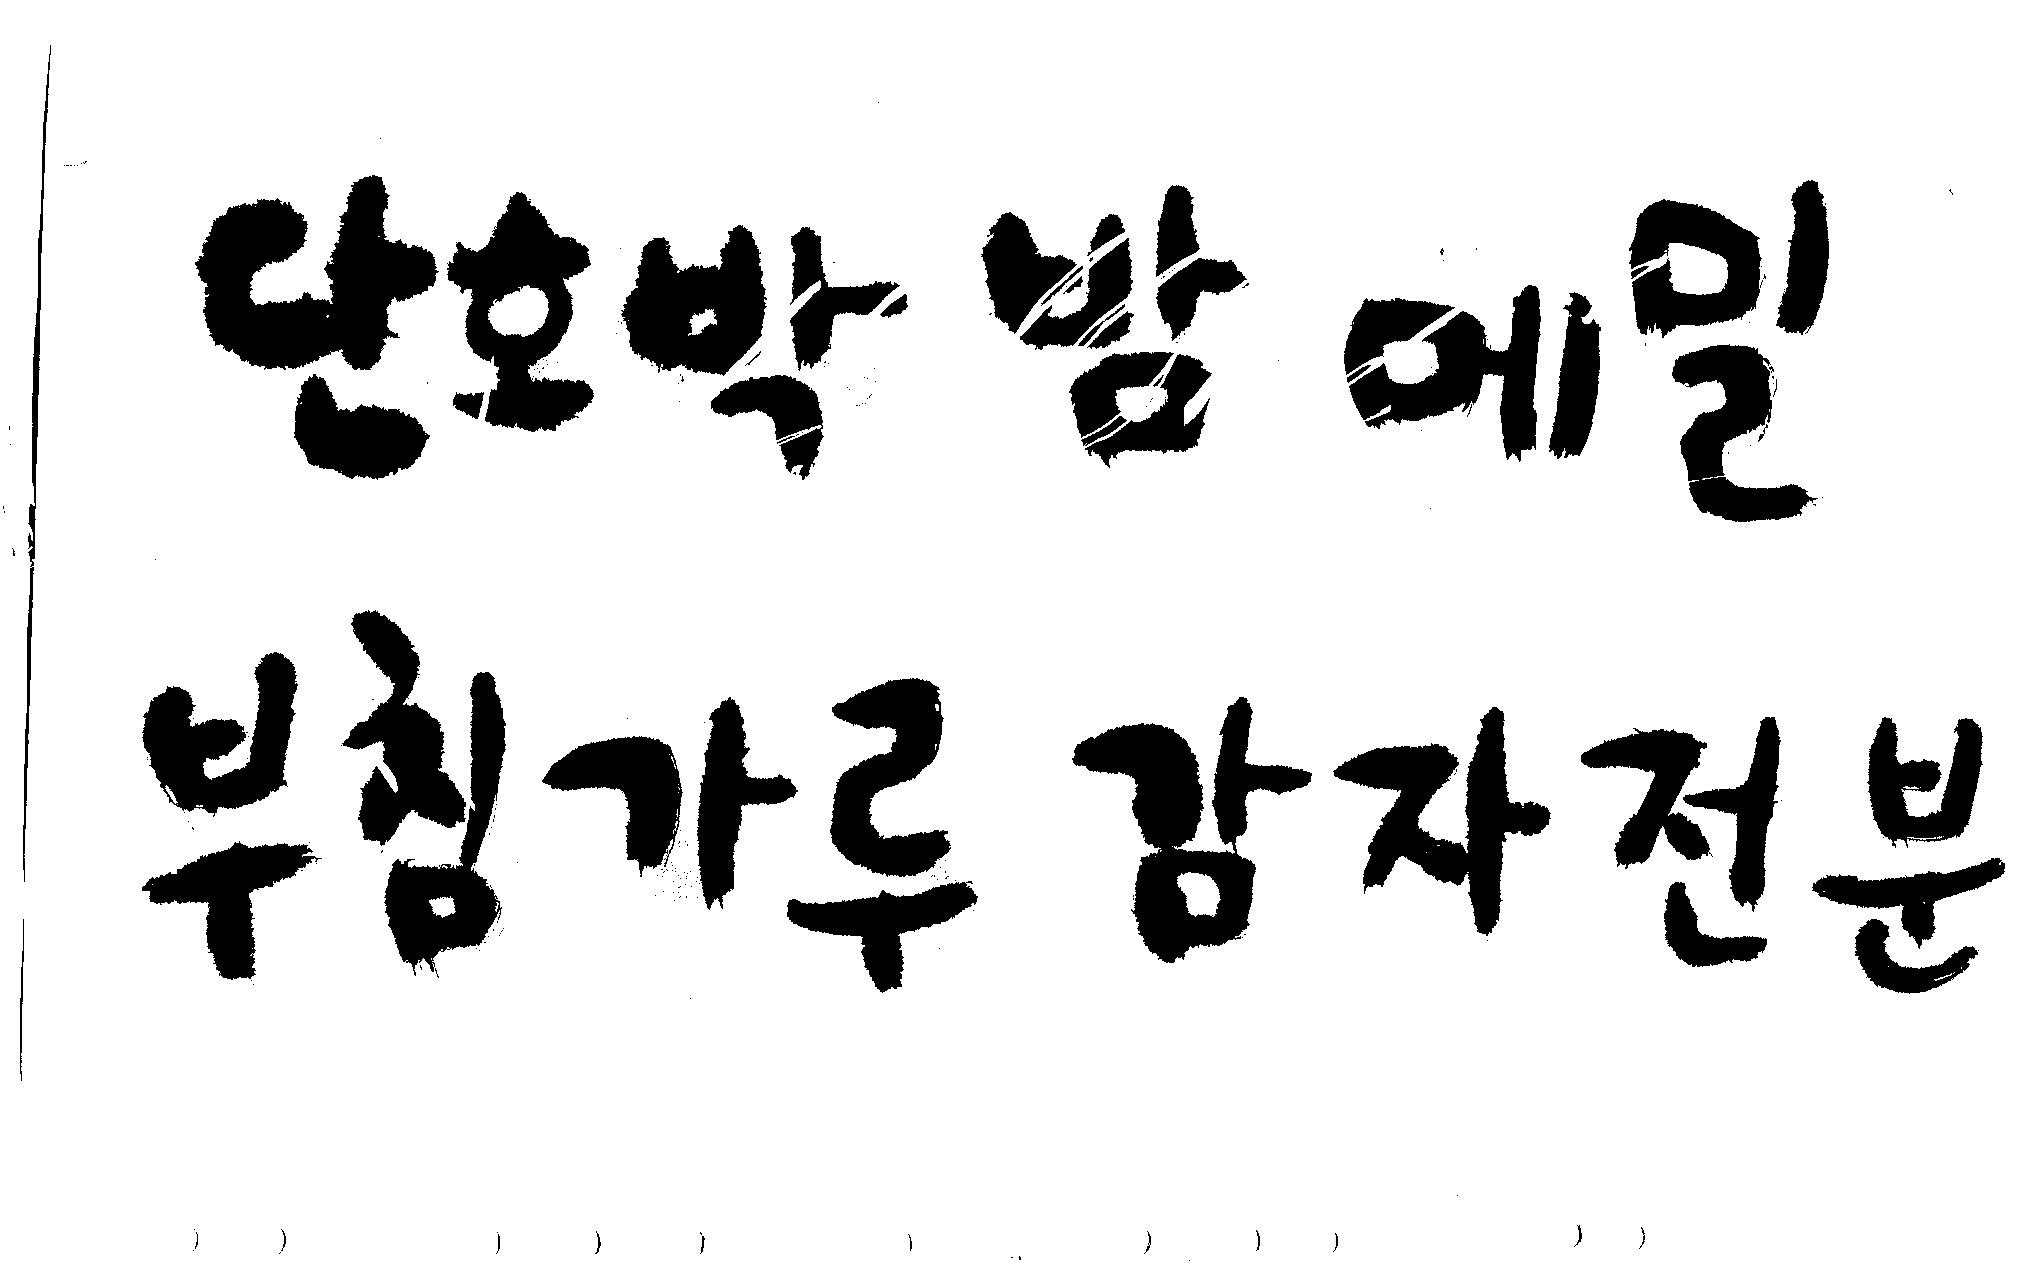 단호박 밤 메밀
부침가루 감자전분